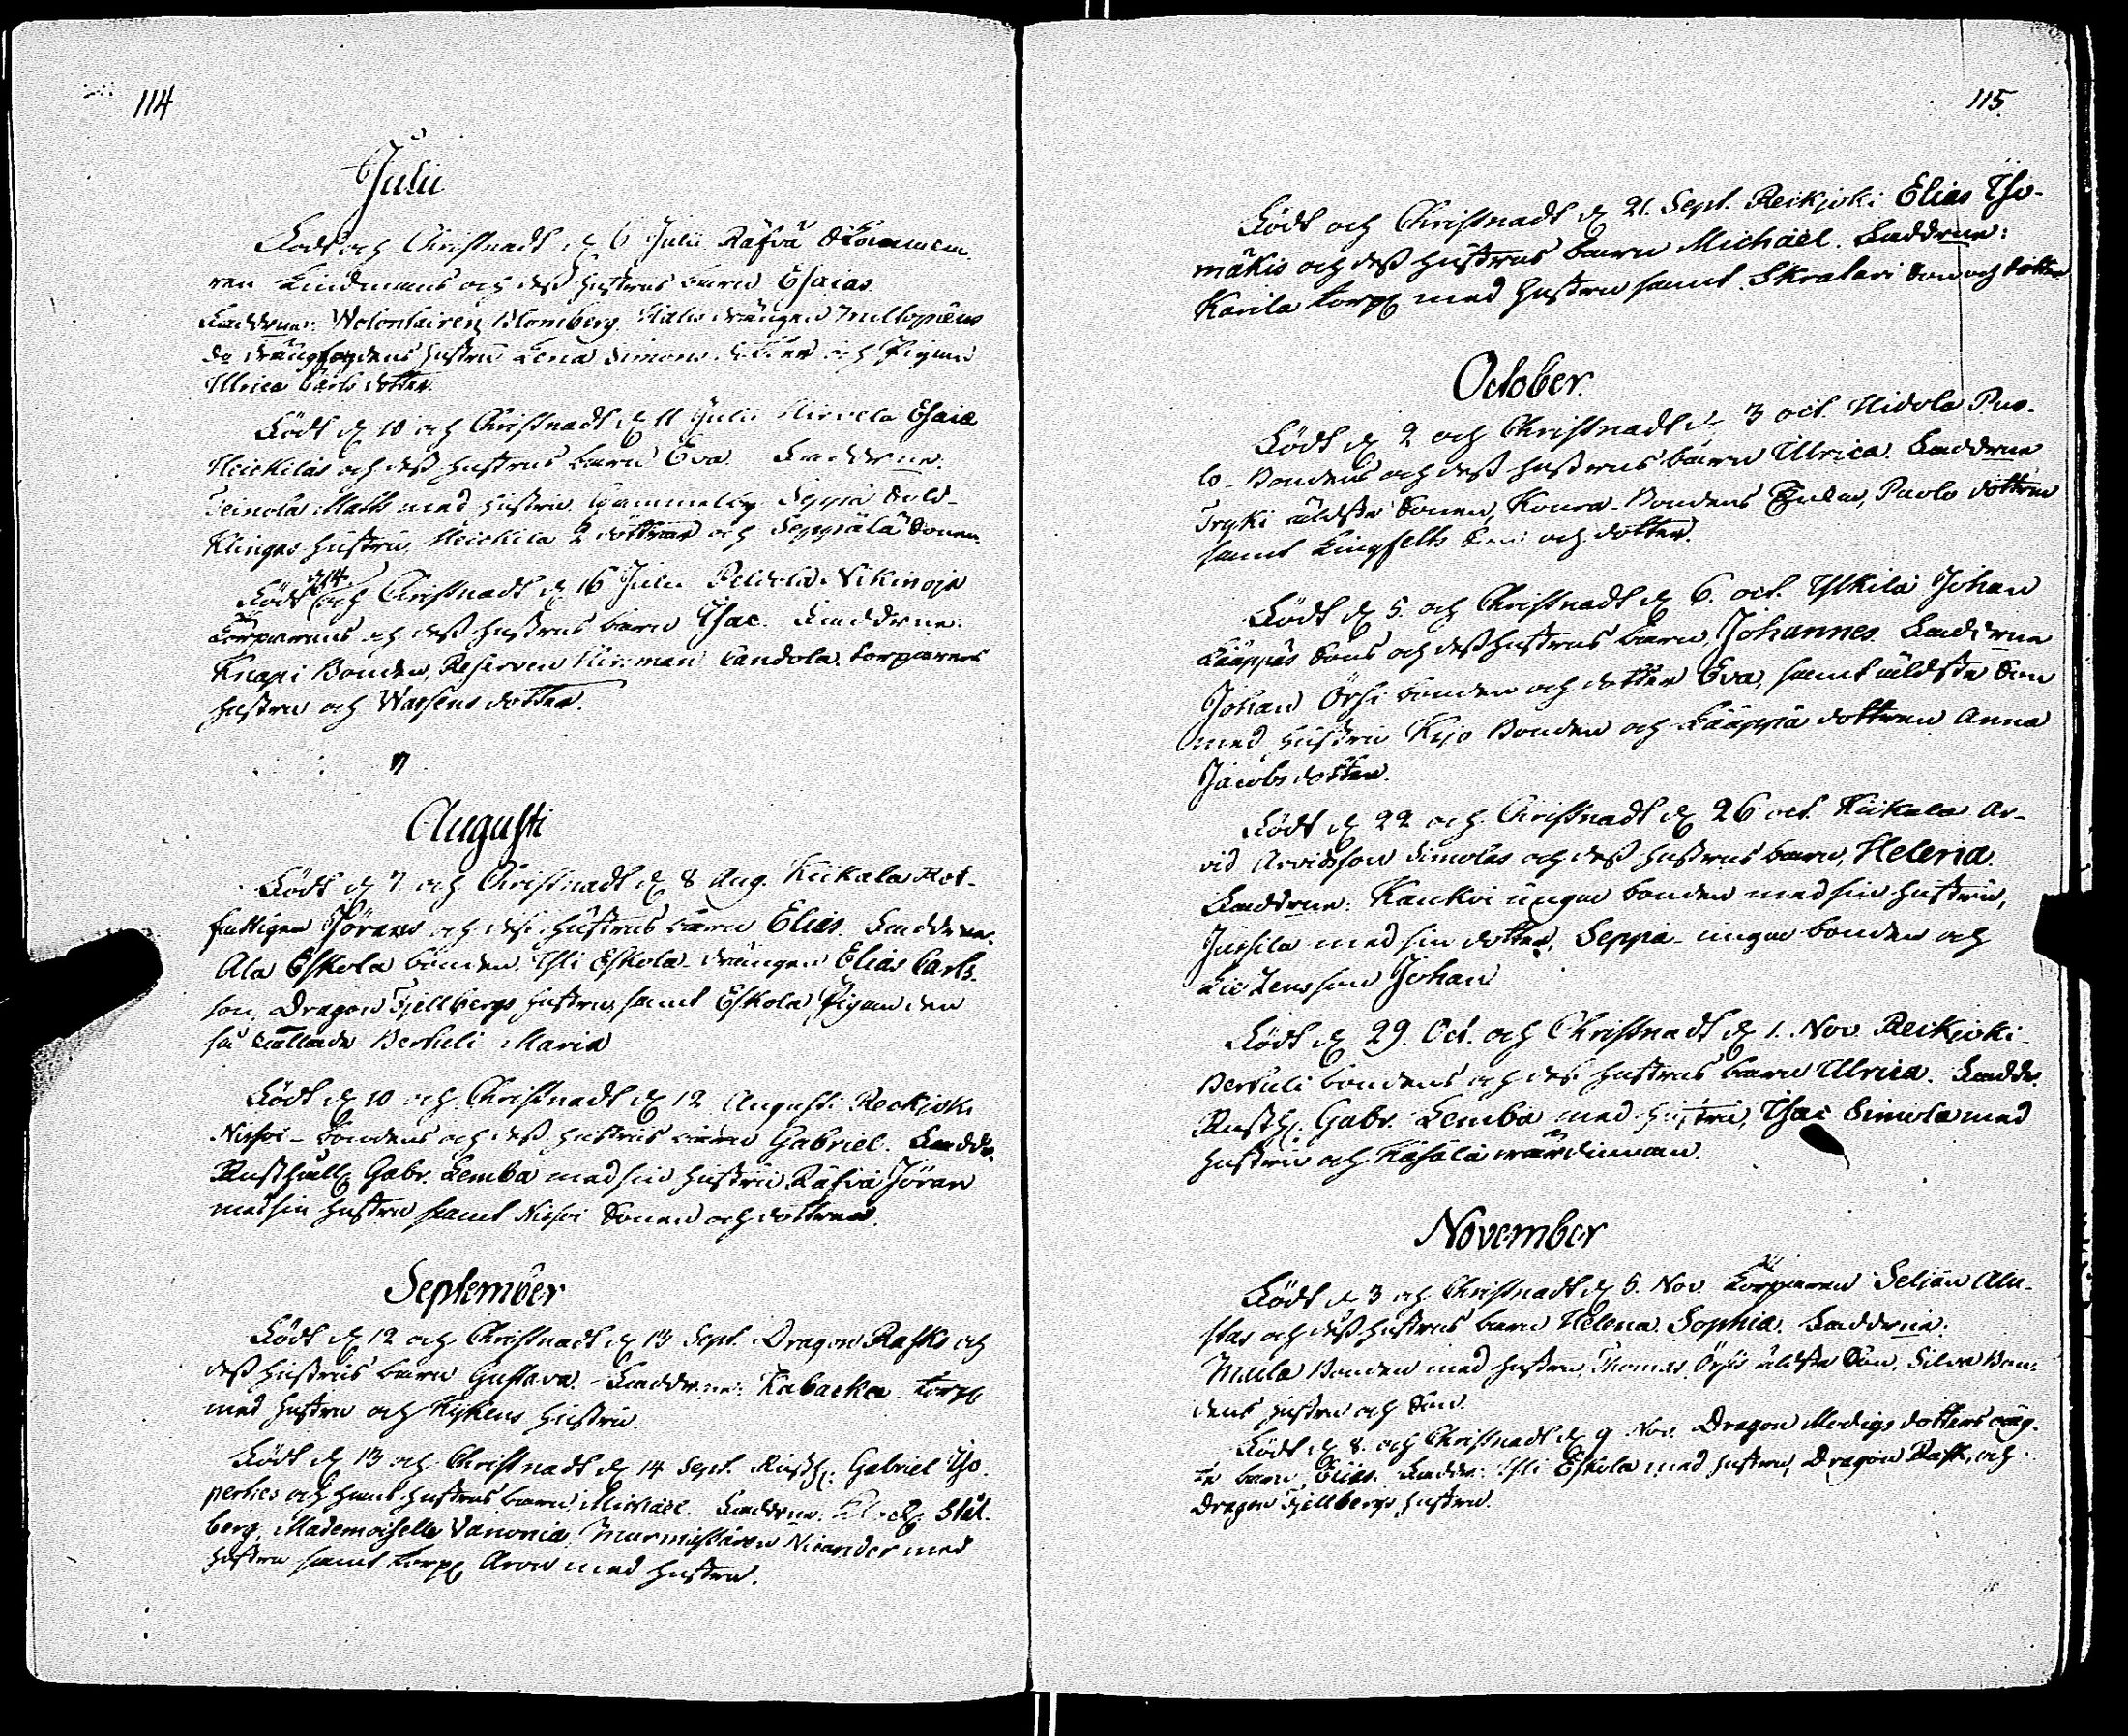 114
Julii
Födt och Christnadt d. 6 Julii Räfvå
ren Lindmans och dess hustrus barn Esaias.
Faddrne: Volontairen Blomberg, drängen
hustru Lena Simons dotter och Pigan
Ulrica Carls dotter.
Födt d. 10 och Christnadt d. 11 Julii Hirvela Esaia
Heickiläs och dess hustrus barn Eva. Faddrne.
Teinola Matts med hustru Gammelby Seppä
Klingas hustru, Heickilä 2 döttrar och Seppälä Sonen.
Födt d. 14. och Christnadt d. 16 Julii Peldola Nikinoja
Torparens och dess hustrus barn Isac. Faddrne:
Knapi Bonden, Reserven Hirman Candola torparens
hustru och Wassens dotter.
Augusti
Födt d. 7 och Christnadt d. 8 Aug. Kiikala Rot-
fattigen Jörans och dess hustrus barn Elias. Faddrne.
Ala Eskola bonden. Isti Eskola drängen Elias Carls-
son, Dragon Fjellbergs hustru, samt Eskola Pigan den
så kallade Bertuli Maria
Födt d. 10 och Christnadt d. 12 Augusti Reckjoki
bondens och dess hustrus barn Gabriel. Faddr.
Rusthåll. Gabr. Lemba med sin hustru, Räfvå Jöran
med sin hustru samt Sonen och dottren.
September
Födt d. 12 och Christnadt d. 13 Sept. Dragon Rasks och
dess hustrus barn Gustava. Faddrne: Kabacka Torp.
med hustru och Kykens hustru.
Födt d. 13 och Christnadt d. 14 Sept. Rusth. Gabriel Iso-
perkes och hans hustrus barn Michael. Faddrne: Stål-
berg, Mademoiselle Vanonia, Murmästaren Nicander med
hustru samt Torp. Aron med hustru.
115
Födt och Christnadt d. 21. Sept. Reikjoki Elias Iso-
mäkis och dess hustrus barn Michael. Faddrne:
Karila torp. med hustru samt Skratari Son och dotter
October.
Födt d. 2 och Christnadt d. 3 oct. Hidola Pao-
lo Bondens och dess hustrus barn Ulrica. Faddrne
Tryki äldste Sonen, Koura-Bondens Paolo dottren
samt Lingfelts Son och dotter.
Födt d. 5. och Christnadt d. 6. oct. Yskilä Johan
Kääppäs Sons och dess hustrus barn, Johannes. Faddrne
Johan Örhi bonden och dotter Eva, samt äldste Son
med hustru Kijo Bonden och Kääppä dottren Anna
Jacobs dotter.
Födt d. 22 och Christnadt d. 26 oct. Kiikala Ar-
vid Arvidsson Simolas och dess hustrus barn, Helena.
Faddrne: Kankoi unga bonden med sin hustru,
Juusila med sin dotter, Seppä unga bonden och
son Johan
Födt d. 29. Oct. och Christnadt d. 1. Nov. Reikjoki
Bertuli bondens och dess hustrus barn Ulrica. Faddr.
Rusth. Gabr. Lemba med hustru, Isac Simola med
hustru och Kasala wärdinnan.
November
Födt d. 3 och Christnadt d. 5. Nov. Torparen Seljän Ala-
stas och dess hustrus barn Helena Sophia. Faddrne:
Bonden med hustru, Thomas Örhis äldste Son, Silva Bon-
dens hustru och Son.
Födt d. 8. och Christnadt d. 9 Nov. Dragon Modigs dotters oäg-
ta barn Elias. Faddr: Isti Eskola med hustru, Dragon Rask, och
Dragon Fjellbergs hustru.